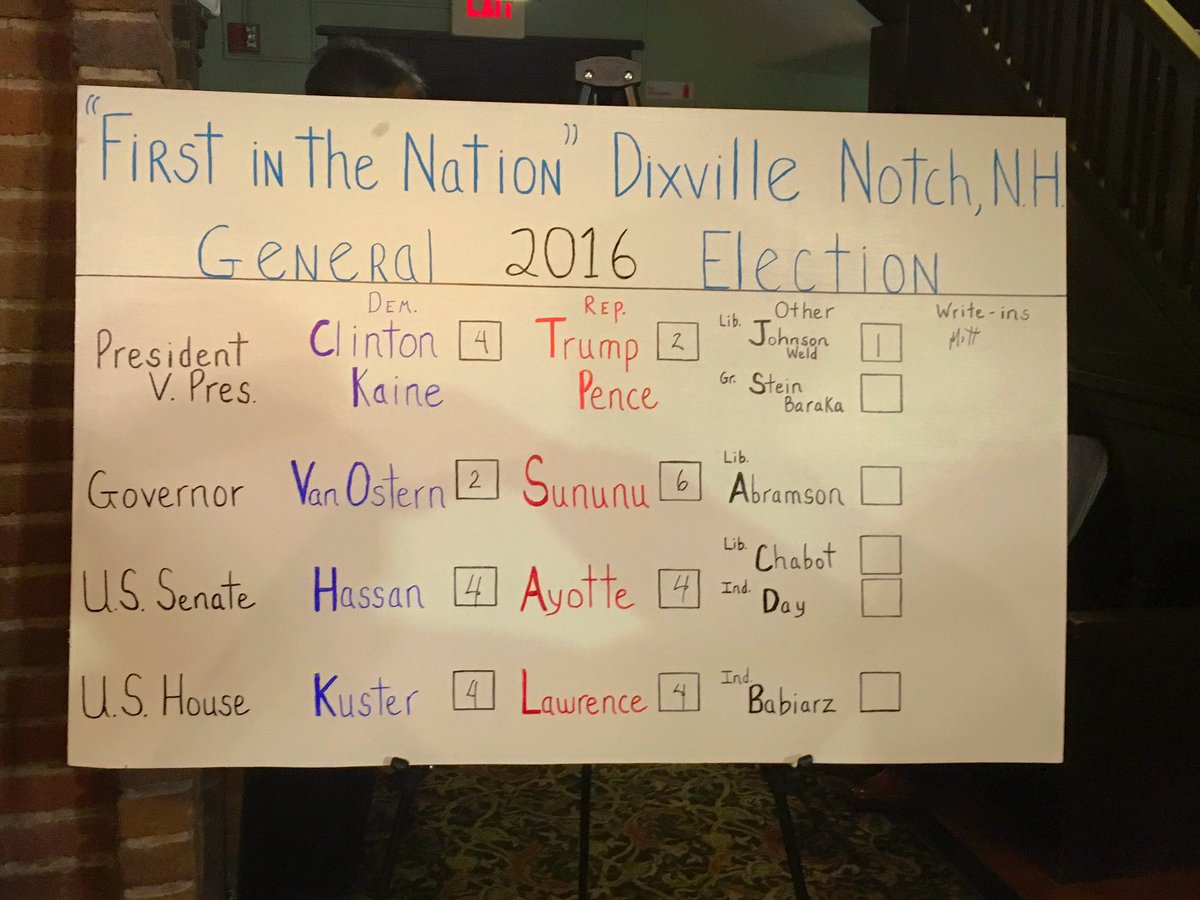 EXIT
“First in the Nation” Dixville Notch, N.H.
General 2016 Election
Dem. Rep. Other Write-ins
President Clinton 4 Trump 2 Lib. Johnson 1 Mitt
Weld
V. Pres. Kaine Pence Gr. Stein
Baraka
Governor Van Ostern 2 Sununu 6 Lib. Abramson
Lib. Chabot
U.S. Senate Hassan 4 Ayotte 4 Ind. Day
U.S. House Kuster 4 Lawrence 4 Ind. Babiarz